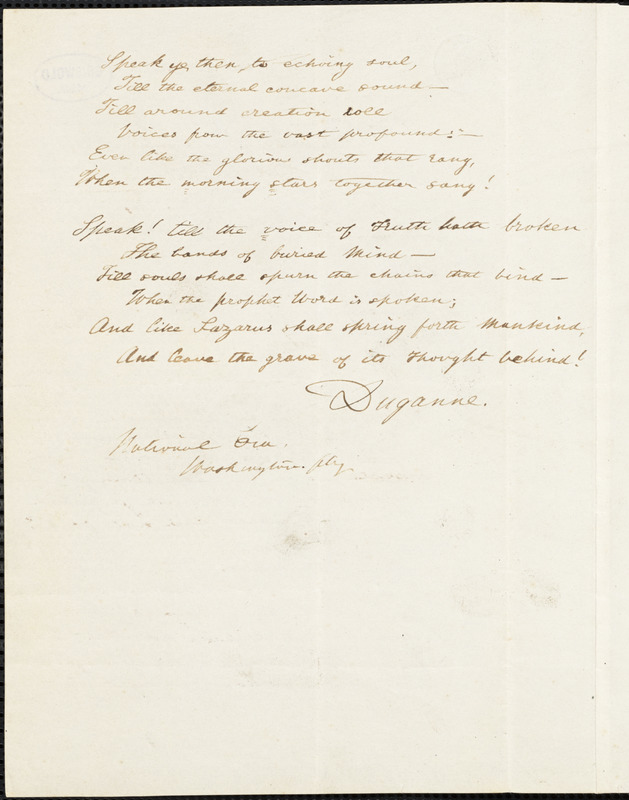 Speak ye, then, to echoing soul,
Till the eternal concave sound —
Till around creation roll
Voices from the vast profound: —
Even like the glorious shouts that rang,
When the morning stars together sang!
Speak! till the voice of Truth hath broken
The bands of buried Mind —
Till souls shall spurn the chains that bind —
When the prophet Word is spoken;
And like Lazarus shall spring forth Mankind,
And leave the grave of its Thought behind!
Duganne.
National Era.
Washington.